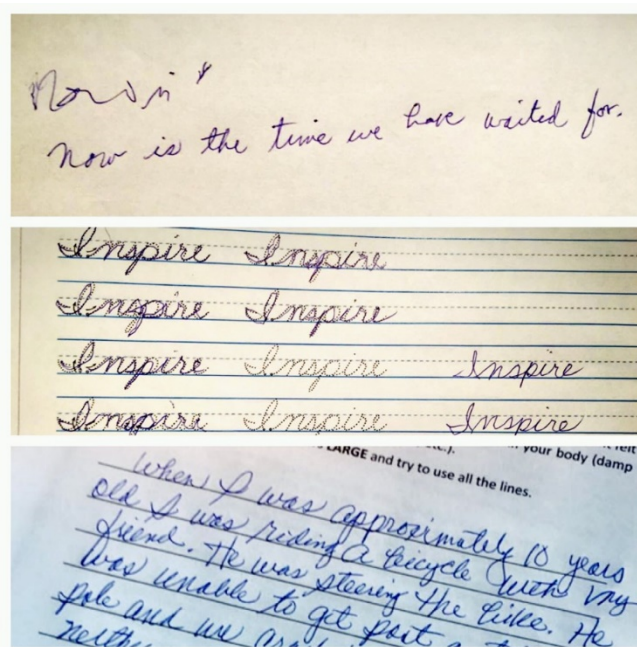 Now is
Now is the time we have waited for.
Inspire Inspire
Inspire Inspire
Inspire Inspire Inspire
Inspire Inspire Inspire
your body (damp
LARGE and try to use all the lines.
When I was approximately 10 years
old I was riding a bicycle with my
friend. He was steering the bike. He
was unable to get past
pole and we